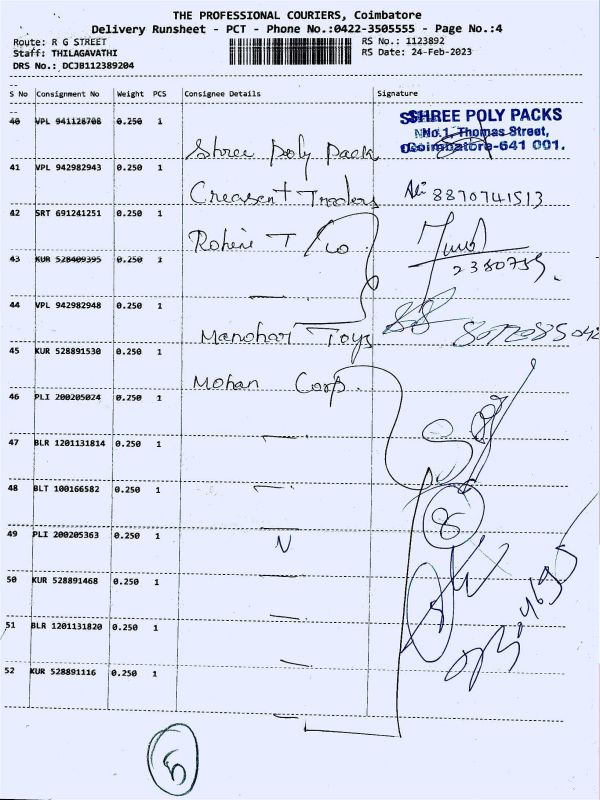 THE PROFESSIONAL COURIERS, Coimbatore
Delivery Runsheet - PCT - Phone No.:0422-3505555 - Page No.:4
Route: R G STREET
RS No.: 1123892
Staff: THILAGAVATHI
RS Date: 24-Feb-2023
DRS No.: DCJB112389204
S No Consignment No Weight PCS Consignee Details Signature
40 VPL 941128708 0.250 1
SHREE POLY PACKS
No.1, Thomas Street,
Coimbatore-641 001.
Shree Poly Pack
41 VPL 942982943 0.250 1
Creasent Traders 8870741513
42 SRT 691241251 0.250 1
Rohini T / Co
43 KUR 528409395 0.250 1
2380759
44 VPL 942982948 0.250 1
Manohar Toys
45 KUR 528891530 0.250 1
Mohan Corp.
46 PLI 200205024 0.250 1
47 BLR 1201131814 0.250 1
48 BLT 100166582 0.250 1
8
49 PLI 200205363 0.250 1
N
50 KUR 528891468 0.250 1
51 BLR 1201131820 0.250 1
52 KUR 528891116 0.250 1